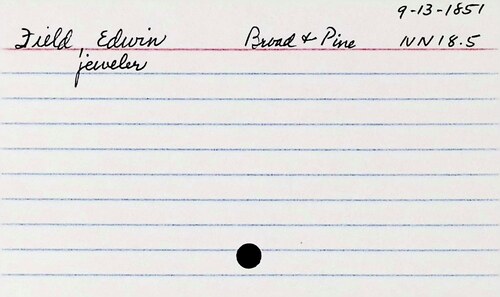 9-13-1851
Field, Edwin Broad & Pine NN18.5
jeweler